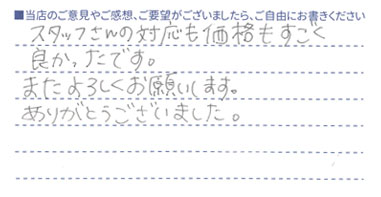 ■当店のご意見やご感想、ご要望がございましたら、ご自由にお書きください
スタッフさんの対応も価格もすごく
良かったです。
またよろしくお願いします。
ありがとうございました。